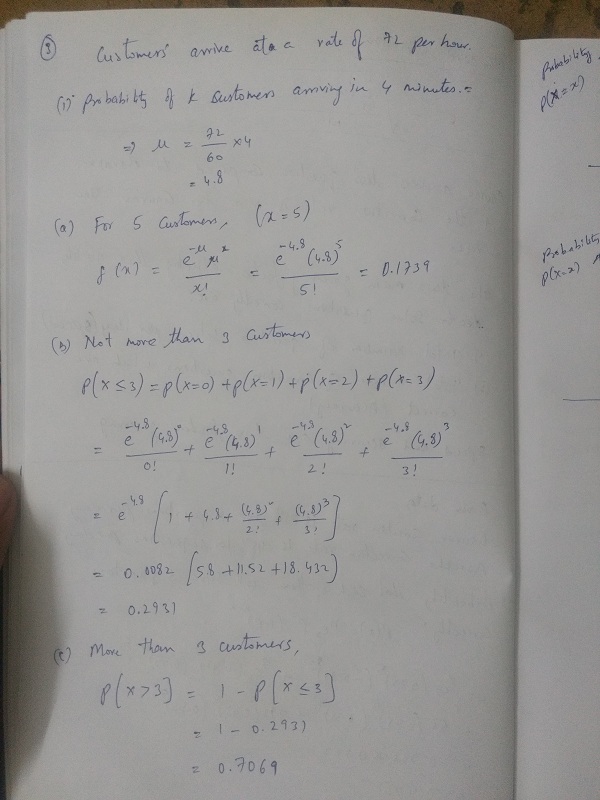 ③ Customers arrive at a rate of 72 per hour.
(i) Probability of k customers arriving in 4 minutes.=
⇒ μ = 72/60 ×4
= 4.8
(a) For 5 customers, (x=5)
f(x) = e^-μ μ^x / x! = e^-4.8 (4.8)^5 / 5! = 0.1739
(b) Not more than 3 customers
P(x≤3) = p(x=0) + p(x=1) + p(x=2) + p(x=3)
= e^-4.8 (4.8)^0 / 0! + e^-4.8 (4.8)^1 / 1! + e^-4.8 (4.8)^2 / 2! + e^-4.8 (4.8)^3 / 3!
= e^-4.8 [1 + 4.8 + (4.8)^2 / 2! + (4.8)^3 / 3!]
= 0.0082 [5.8 + 11.52 + 18.432]
= 0.2931
(c) More than 3 customers,
P[x>3] = 1 - P[x≤3]
= 1 - 0.2931
= 0.7069
Probability
P(X=x)
Probability
P(X=x)